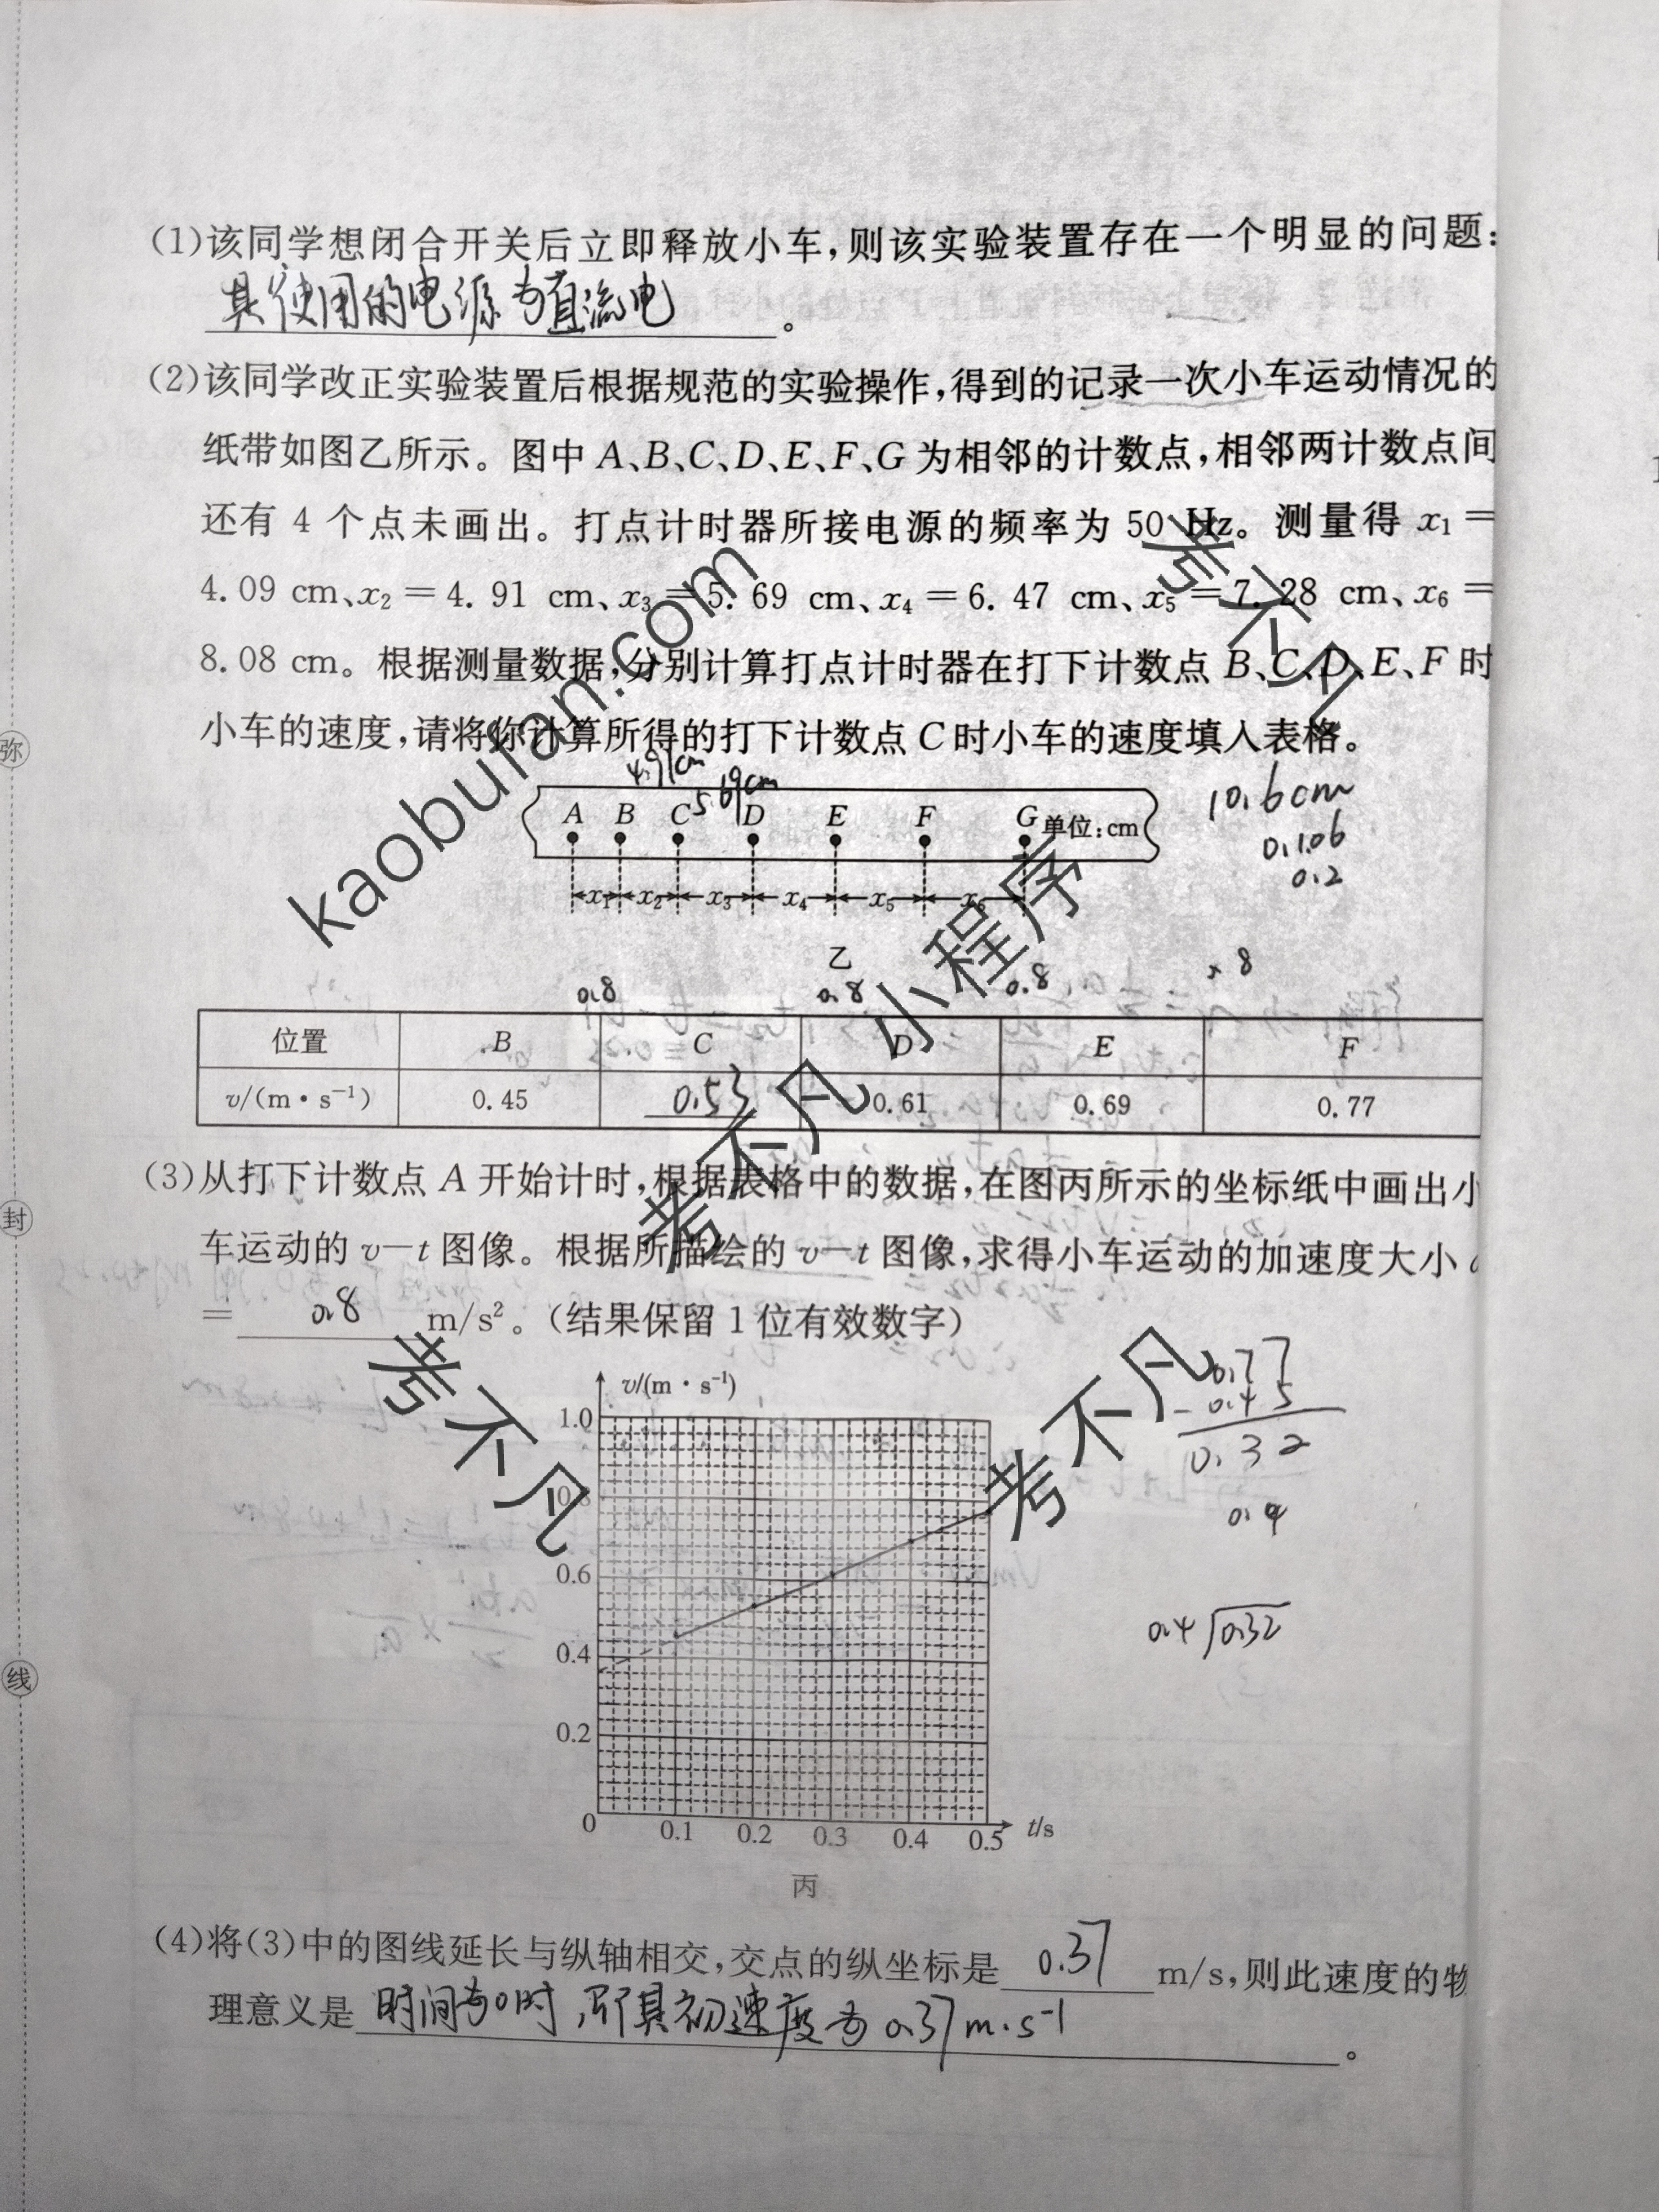 (1)该同学想闭合开关后立即释放小车,则该实验装置存在一个明显的问题:
其使用的电源为直流电。
(2)该同学改正实验装置后根据规范的实验操作,得到的记录一次小车运动情况的
纸带如图乙所示。图中A、B、C、D、E、F、G为相邻的计数点,相邻两计数点间
还有4个点未画出。打点计时器所接电源的频率为50 Hz。测量得x₁=
4.09 cm、x₂=4.91 cm、x₃=5.69 cm、x₄=6.47 cm、x₅=7.28 cm、x₆=
8.08 cm。根据测量数据,分别计算打点计时器在打下计数点B、C、D、E、F时
小车的速度,请将你计算所得的打下计数点C时小车的速度填入表格。
4.91cm
5.69cm
A B C D E F G 单位:cm
x₁ x₂ x₃ x₄ x₅ x₆
10.6cm
0.106
0.2
乙
0.8 0.8 0.8 8
位置 B C D E F
v/(m·s⁻¹) 0.45 0.53 0.61 0.69 0.77
(3)从打下计数点A开始计时,根据表格中的数据,在图丙所示的坐标纸中画出小
车运动的v-t图像。根据所描绘的v-t图像,求得小车运动的加速度大小
= 0.8 m/s²。(结果保留1位有效数字)
v/(m·s⁻¹)
1.0
0.8
0.6
0.4
0.2
0 0.1 0.2 0.3 0.4 0.5 t/s
丙
0.77
- 0.45
0.32
0.4
0.4 0.32
(4)将(3)中的图线延长与纵轴相交,交点的纵坐标是 0.37 m/s,则此速度的物
理意义是 时间为0时,即其初速度为0.37m·s⁻¹。
弥
封
线
kaobufan.com
考不凡
考不凡小程序
考不凡
考不凡